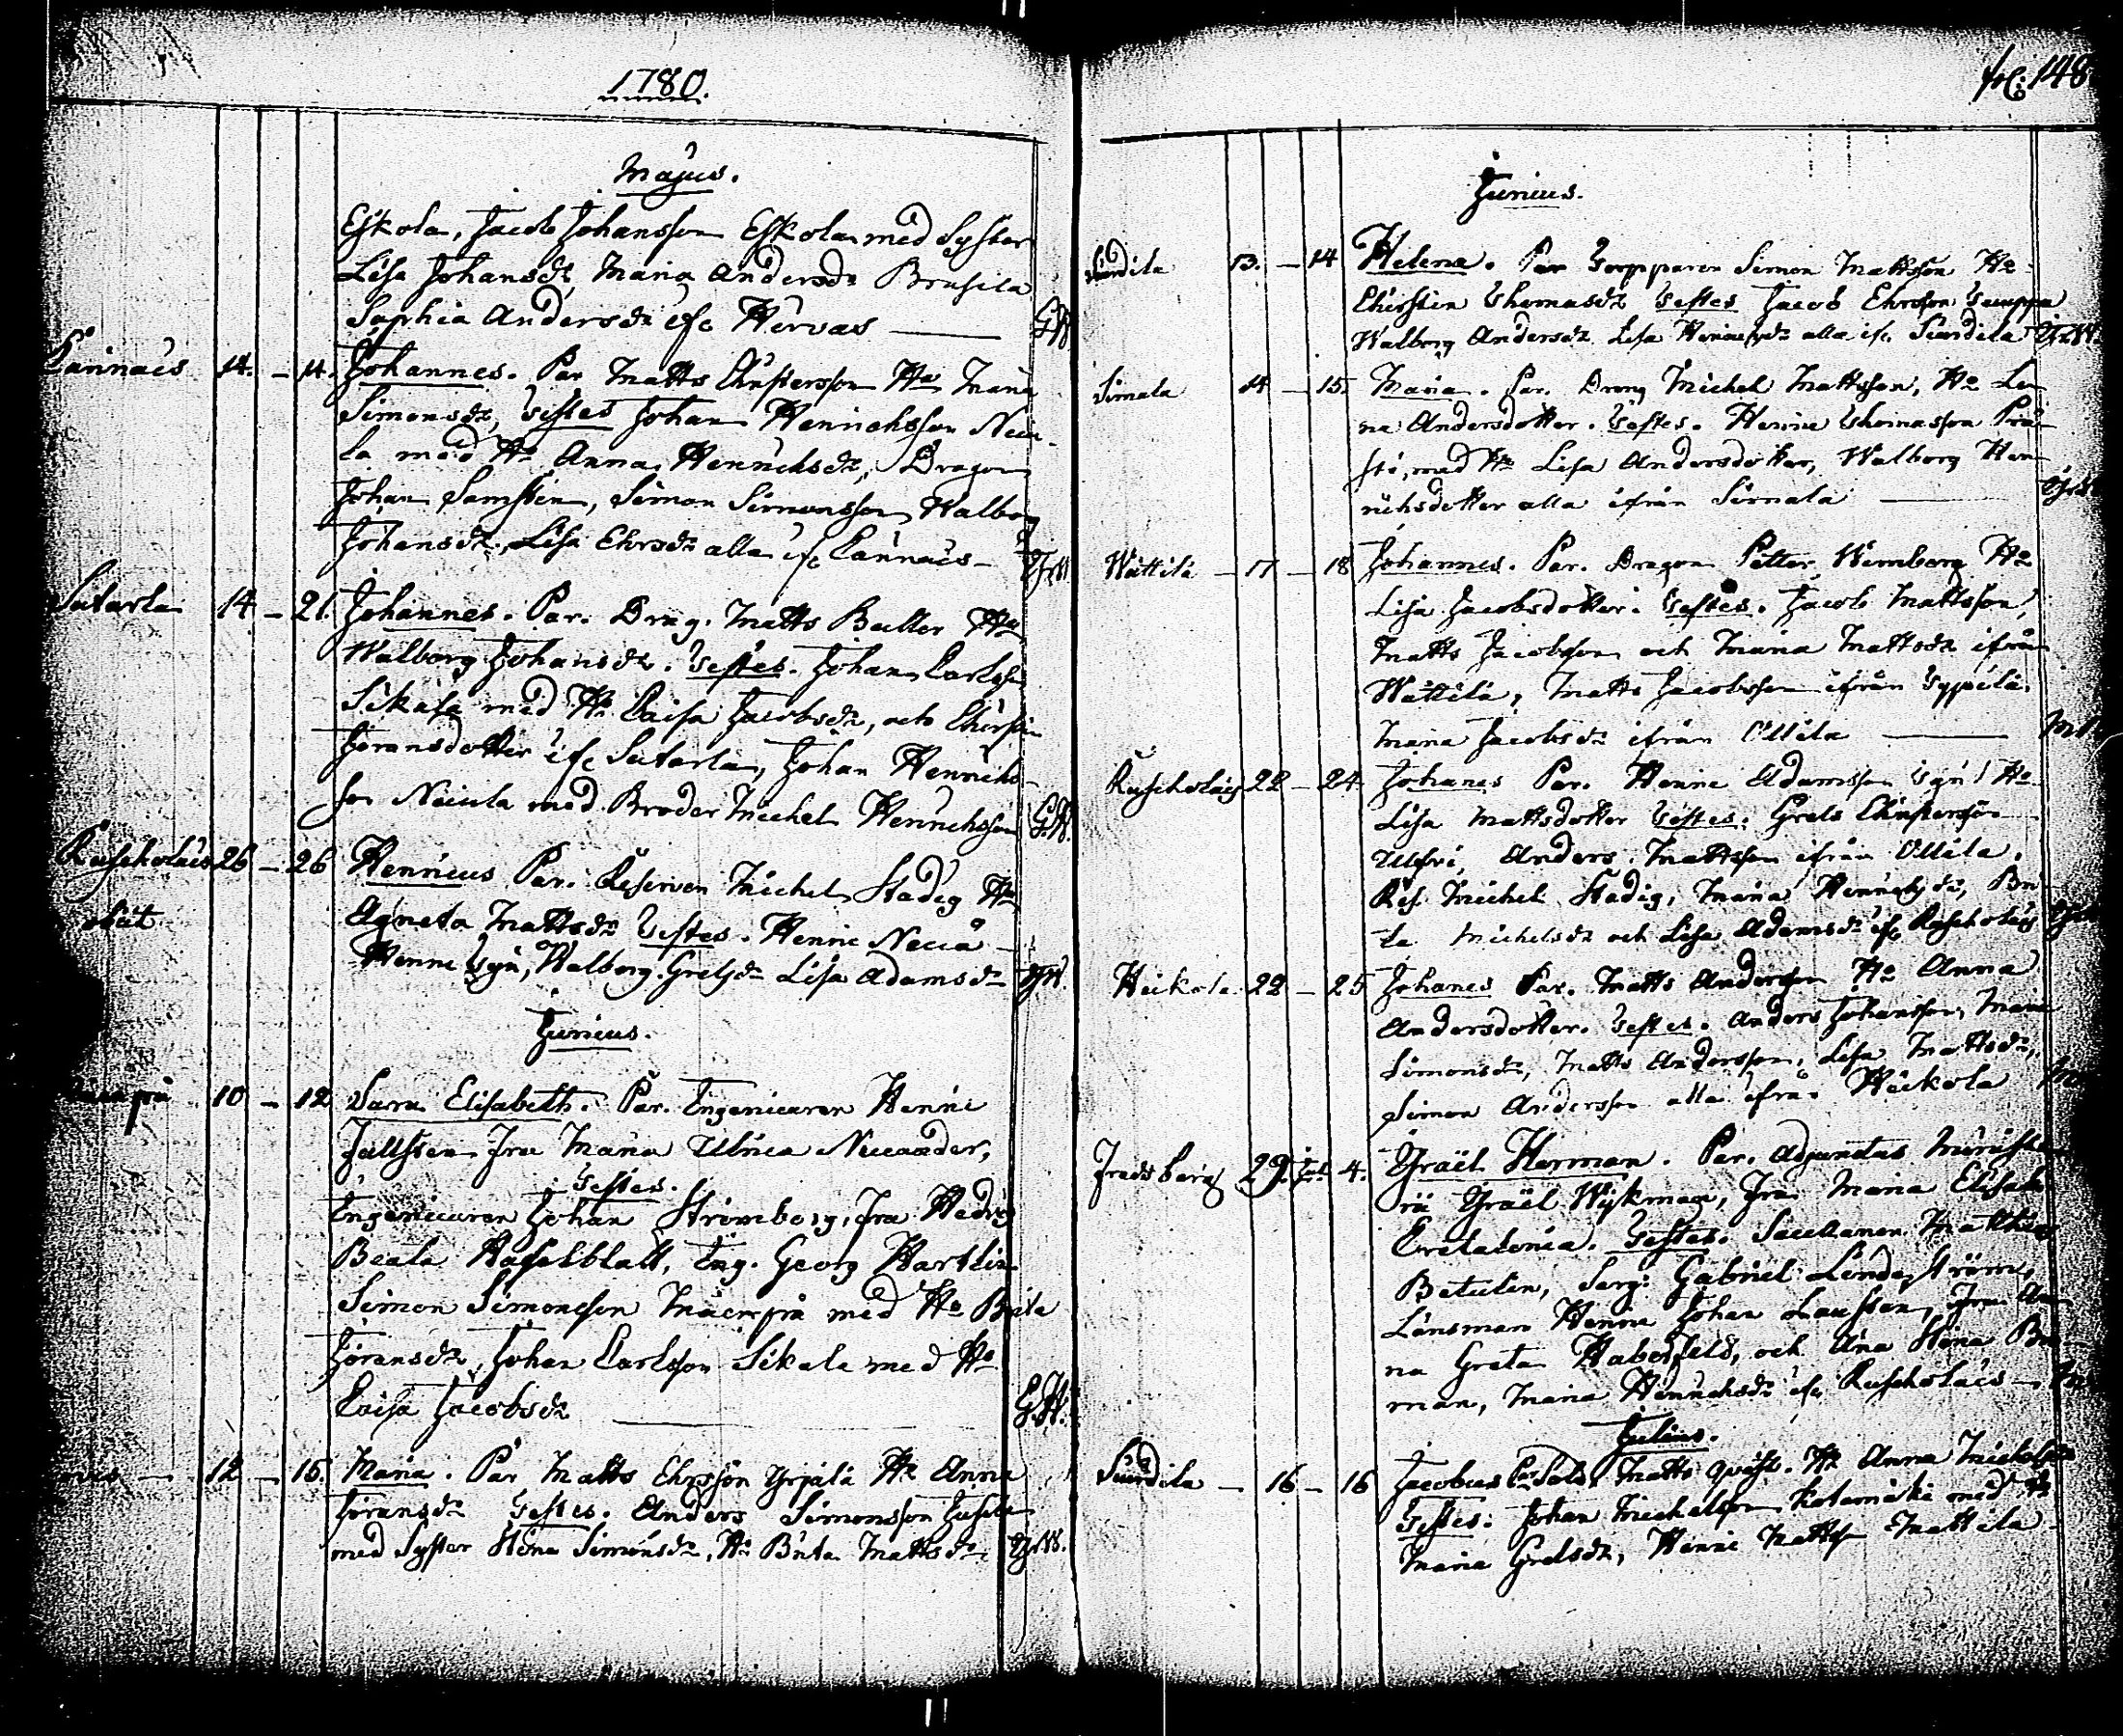 1780.
Majus.
Eskola, Jacob Johansson Eskola med Syster
Lisa Johansdr, Maria Andersdr Brusila
Sophia Andersdr if: Hervas — G.W.
Cannais 14. – 14. Johannes. Par Matts Christersson Hu Maria
Simonsdr, Testes Johan Henrichsson Neu-
la med Hu Anna Henrichsdr, Dragon
Johan Samsten, Simon Simonsson, Walborg
Johansdr, Lisa Ehrsdr alla if: Cannais –
Sutarla 14 – 21. Johannes. Par. Drag. Matts Buller Hu
Walborg Johansdr. Testes. Johan Carlsson
Sikala med Hu Caisa Jacobsdr, och Chirstin
Göransdotter if: Sutarla, Johan Henrichs-
son Neiula med Broder Michel Henrichsson G.W.
Ruskolais 26 – 26 Henricus Par. Reserven Michel Stadig Hu
Agneta Mattsdr Testes. Henric
Henric Walborg Gretsdr Lisa Adamsdr
Junius.
10 – 12 Sara Elisabeth. Par. Ingenieuren Henric
Jallsten Fru Maria Ulrica Nicander,
Testes.
Ingenieuren Johan Strömborg, Fru Hedvig
Beata Hasselblatt, Ing. Georg Wartlin
Simon Simonsson Mäenpä med Hu Brita
Göransdr, Johan Carlsson Sikala med Hu
Caisa Jacobsdr — G.W.
12 – 15. Maria. Par Matts Ehrsson Yrjälä Hu Anna
Göransdr Testes. Anders Simonsson
med Syster Stina Simonsdr, Hu Brita Mattsdr
fol: 148
Junius.
Suirdila 13. – 14 Helena. Par Torpparen Simon Mattsson Hu
Chirstin Thomasdr Testes Jacob Ehrsson
Walborg Andersdr Lisa Henrichsdr alla if: Suirdila
Simala 14 – 15. Maria. Par. Drag Michel Mattsson, Hu Le-
na Andersdotter. Testes. Henric Thomasson Prä-
sti, med Hu Lisa Andersdotter, Walborg Hen-
richsdotter alla ifrån Simala —
Wättilä – 17 – 18 Johannes. Par. Dragon Petter Wirnberg Hu
Lisa Jacobsdotter. Testes. Jacob Mattsson,
Matts Jacobsson och Maria Mattsdr ifrån
Wättilä, Matts Jacobsson ifrån Typpilä.
Maria Jacobsdr ifrån Ollila —
Ruskolais 22 – 24. Johanes Par. Henric Adamsson Hu
Lisa Mattsdotter Testes: Grels Christersson
Anders Mattsson ifrån Ollila.
Res. Michel Stadig, Maria Henrichsdr, Bri-
ta Michelsdr och Lisa Adamsdr if: Ruskolais
Heickola 22 – 25 Johanes Par. Matts Andersson Hu Anna
Andersdotter. Testes. Anders Johansson, Maria
Simonsdr, Matts Andersson, Lisa Mattsdr,
Simon Andersson alla ifrån Heickola
Fredsberg 29. Jul. 4. Israël Herman. Par. Adjunctus Ministe-
rii Israël Wijkman, Fru Maria Elisab:
Testes. Matthias
Betulin, Serg: Gabriel Lindeström,
Länsman Henric Johan Fru An-
na Greta Haberfeld, och
man, Maria Henrichsdr if: Ruskolais —
Julius.
Suirdila – 16 – 16 Jacobus Par Sold. Matts Qvist. Hu Anna Michelsdr
Testes: Johan Michelsson med Hu
Maria Grelsdr, Henric Mattsson Mattila